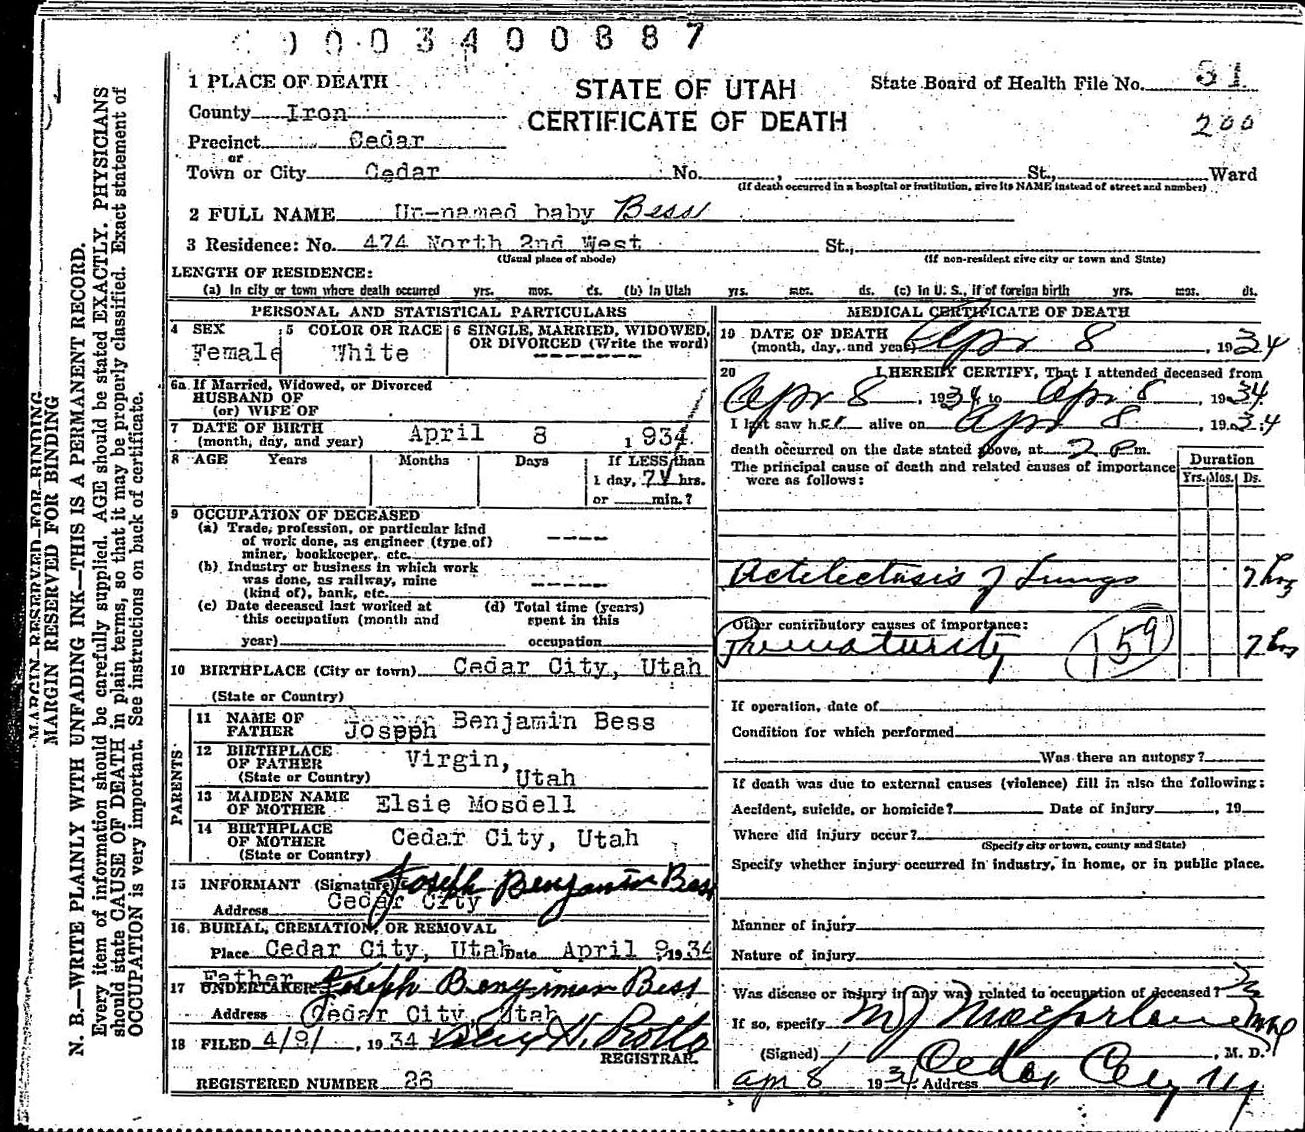 0003400887
1 PLACE OF DEATH
STATE OF UTAH
CERTIFICATE OF DEATH
State Board of Health File No. 31
200
County Iron
Precinct Cedar
or
Town or City Cedar No. , St., Ward
(If death occurred in a hospital or institution, give its NAME instead of street and number)
2 FULL NAME Un-named baby Bess
3 Residence: No. 474 North 2nd West St.,
(Usual place of abode) (If non-resident give city or town and State)
LENGTH OF RESIDENCE:
(a) In city or town where death occurred yrs. mos. ds. (b) In Utah yrs. mos. ds. (c) In U. S., if of foreign birth yrs. mos. ds.
PERSONAL AND STATISTICAL PARTICULARS
4 SEX Female
5 COLOR OR RACE White
6 SINGLE, MARRIED, WIDOWED,
OR DIVORCED (Write the word)
-------
6a If Married, Widowed, or Divorced
HUSBAND OF
(or) WIFE OF
7 DATE OF BIRTH
(month, day, and year) April 8 1934
8 AGE Years Months Days If LESS than
1 day, 7 hrs.
or min.?
9 OCCUPATION OF DECEASED
(a) Trade, profession, or particular kind
of work done, as engineer (type of)
miner, bookkeeper, etc. ----
(b) Industry or business in which work
was done, as railway, mine
(kind of), bank, etc. -----
(c) Date deceased last worked at
this occupation (month and
year)
(d) Total time (years)
spent in this
occupation
10 BIRTHPLACE (City or town) Cedar City, Utah
(State or Country)
PARENTS
11 NAME OF
FATHER Joseph Benjamin Bess
12 BIRTHPLACE
OF FATHER Virgin,
(State or Country) Utah
13 MAIDEN NAME
OF MOTHER Elsie Mosdell
14 BIRTHPLACE
OF MOTHER Cedar City, Utah
(State or Country)
15 INFORMANT (Signature) Joseph Benjamin Bess
Address Cedar City
16. BURIAL, CREMATION, OR REMOVAL
Place Cedar City, Utah Date April 9, 1934
Father
17 UNDERTAKER Joseph Benjiman Bess
Address Cedar City, Utah
18 FILED 4/9/, 1934 H. Rollo
REGISTRAR.
REGISTERED NUMBER 26
MEDICAL CERTIFICATE OF DEATH
19 DATE OF DEATH
(month, day, and year) Apr 8, 1934
20 I HEREBY CERTIFY, That I attended deceased from
Apr 8, 1934 to Apr 8, 1934
I last saw her alive on Apr 8, 1934
death occurred on the date stated above, at 2 Pm.
The principal cause of death and related causes of importance
were as follows:
Duration
Yrs. Mos. Ds.
Actelectasis of Lungs 7 hrs
Other contributory causes of importance:
Prematurity 159 7 hrs
If operation, date of
Condition for which performed
Was there an autopsy?
If death was due to external causes (violence) fill in also the following:
Accident, suicide, or homicide? Date of injury , 19
Where did injury occur?
(Specify city or town, county and State)
Specify whether injury occurred in industry, in home, or in public place.
Manner of injury
Nature of injury
Was disease or injury in any way related to occupation of deceased? No
If so, specify
(Signed) M J Macfarlane , M. D.
Apr 8 1934 Address Cedar City
MARGIN RESERVED FOR BINDING
MARGIN RESERVED FOR BINDING
N. B.—WRITE PLAINLY WITH UNFADING INK—THIS IS A PERMANENT RECORD.
Every item of information should be carefully supplied. AGE should be stated EXACTLY. PHYSICIANS
should state CAUSE OF DEATH in plain terms, so that it may be properly classified. Exact statement of
OCCUPATION is very important. See instructions on back of certificate.